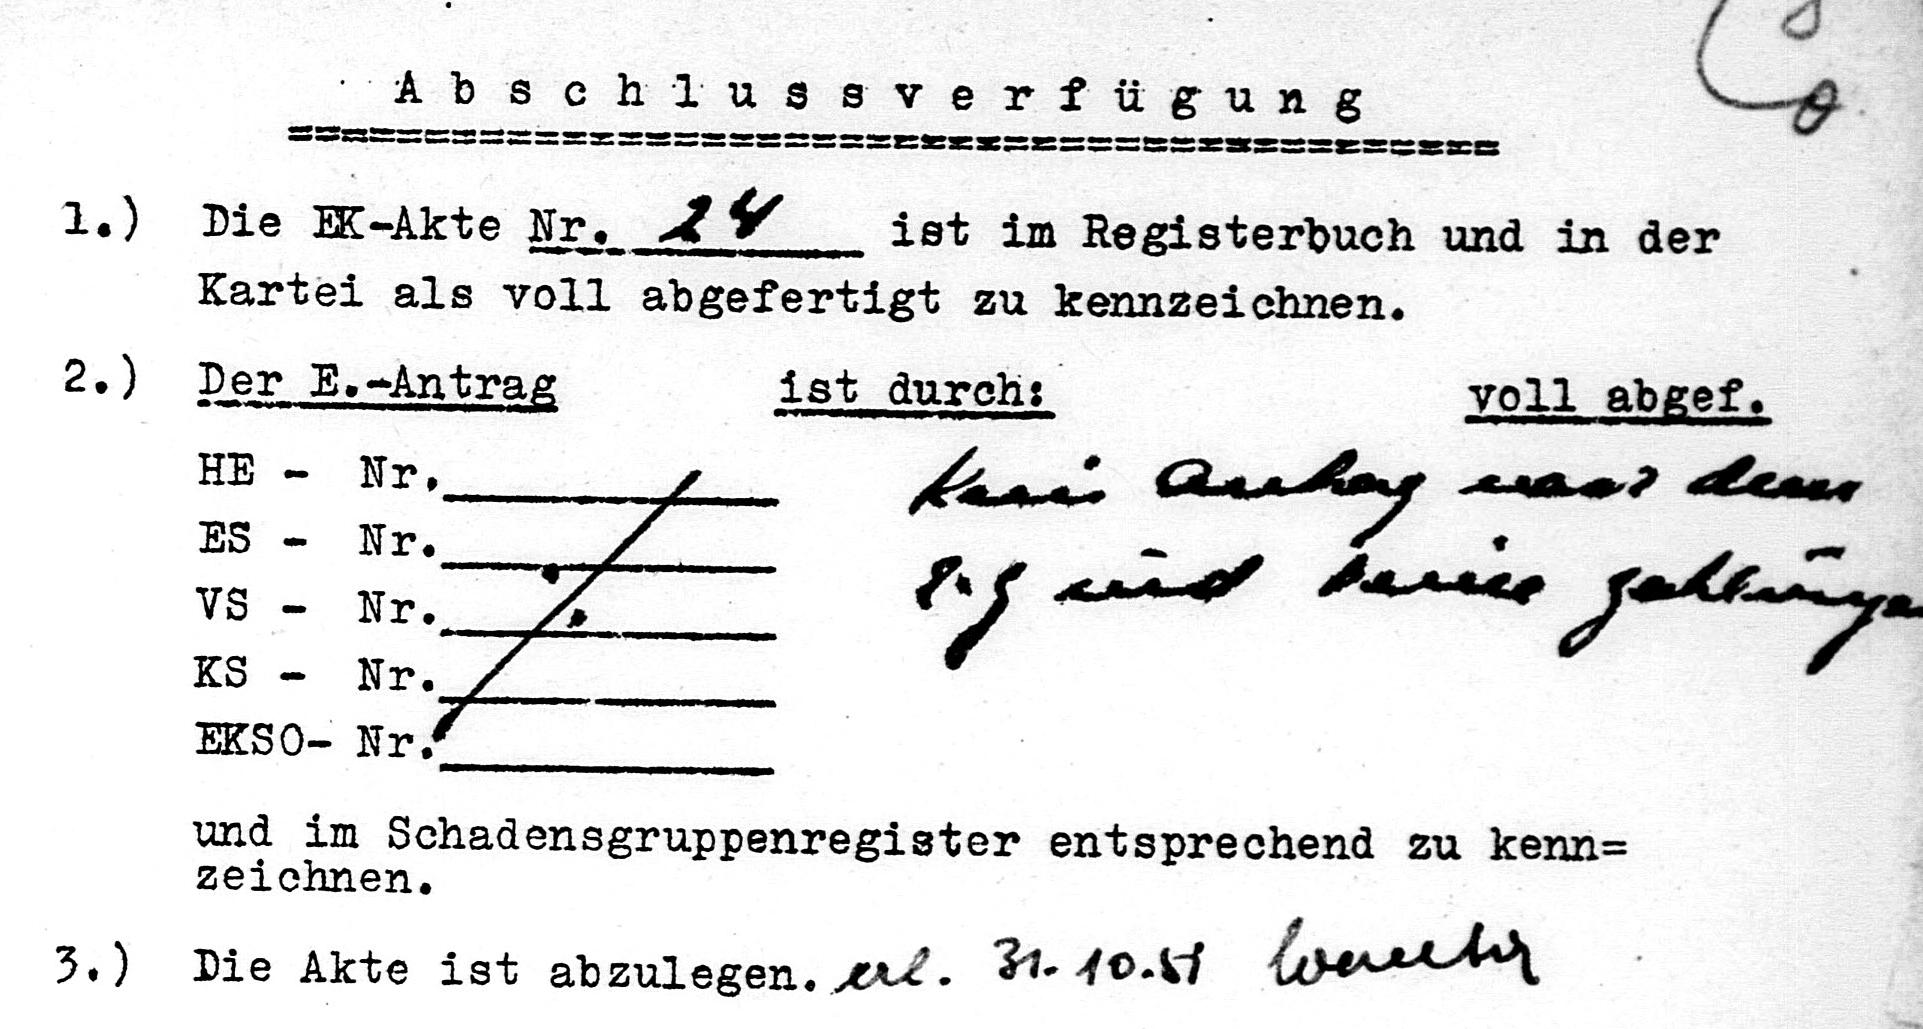 Abschlussverfügung
1.) Die EK-Akte Nr. 24 ist im Registerbuch und in der
Kartei als voll abgefertigt zu kennzeichnen.
2.) Der E.-Antrag ist durch: voll abgef.
HE - Nr. Kein Antrag nach dem
ES - Nr. und keine Zahlungen
VS - Nr.
KS - Nr.
EKSO- Nr.
und im Schadensgruppenregister entsprechend zu kenn=
zeichnen.
3.) Die Akte ist abzulegen. erl. 31.10.51